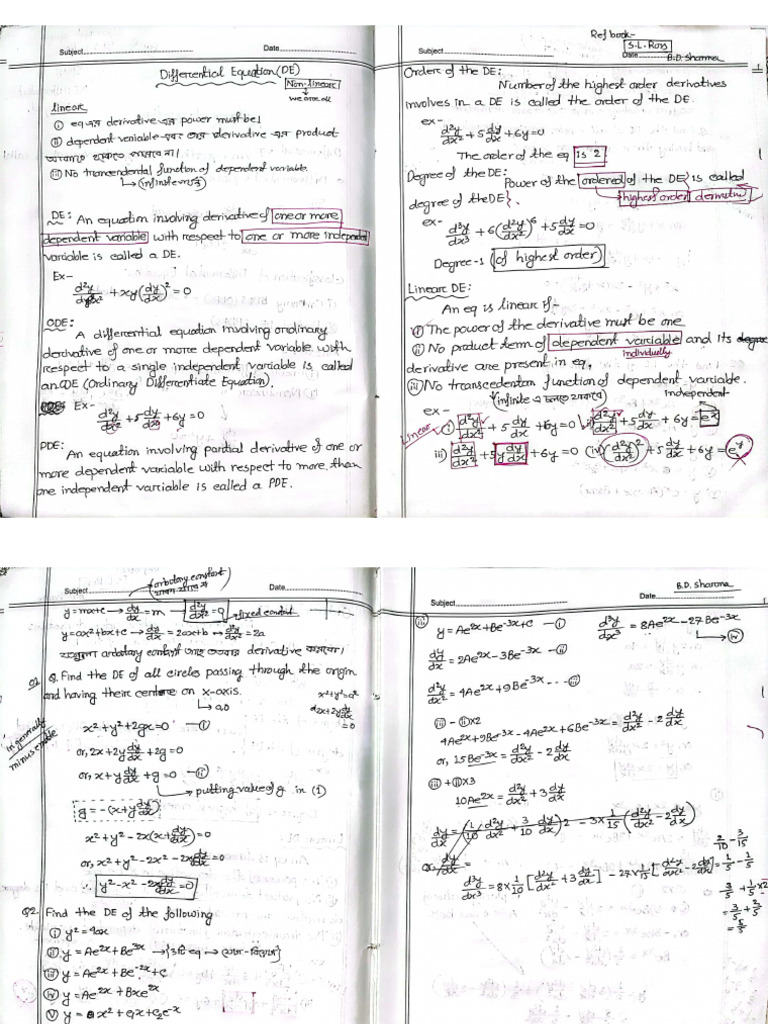 Subject Date
Differential Equation (DE)
Non-linear
we are all
linear
(i) eq এর derivative এর power must be 1
(ii) dependent variable এবং তার derivative এর product
থাকতে পারবে না।
(iii) No trancendental function of dependent variable.
DE: An equation involving derivative of one or more
dependent variable with respect to one or more independent
variable is called a DE.
Ex-
d²y/dx² + xy(dy/dx)² = 0
ODE:
A differential equation involving ordinary
derivative of one or more dependent variable with
respect to a single independent variable is called
an ODE (Ordinary Differentiate Equation).
Ex- d²y/dx² + 5 dy/dx + 6y = 0
PDE:
An equation involving partial derivative of one or
more dependent variable with respect to more than
one independent variable is called a PDE.
Ref book-
S.L. Ross
Subject Date B.D. Sharma
Order of the DE: 1
Number of the highest order derivatives
involves in a DE is called the order of the DE.
ex-
d²y/dx² + 5 dy/dx + 6y = 0
The order of the eq is 2
Degree of the DE:
Power of the ordered of the DE} is called
highest order derivative
degree of the DE}.
ex-
d³y/dx³ + 6(d²y/dx²)⁶ + 5 dy/dx = 0
Degree-1 (of highest order)
Linear DE:
An eq is linear if-
(i) The power of the derivative must be one
(ii) No product term of dependent variable and its
individually
derivative are present in eq.
(iii) No transcedental function of dependent variable.
Independent
ex-
Linear
i) d²y/dx² + 5 dy/dx + 6y = 0 ii) d²y/dx² + 5 dy/dx + 6y = eˣ
iii) d²y/dx² + 5y dy/dx + 6y = 0 (iv) (d²y/dx²)² + 5 dy/dx + 6y = e^y
Subject (arbotary constant Date
y = mx+c → dy/dx = m → d²y/dx² = 0 → fixed contant
y = ax²+bx+c → dy/dx = 2ax+b → d²y/dx² = 2a
arbotary contant আছে derivative
Q1 Q. Find the DE of all circles passing through the origin
and having their centre on x-axis.
x²+y²=a²
2x+2y dy/dx = 0
In generally minus
x²+y²+2gx=0 —(i)
or, 2x+2y dy/dx +2g=0
or, x+y dy/dx +g=0 —(ii)
putting value of g in (1)
g = -(x+y dy/dx)
x²+y²-2x(x+y dy/dx)=0
or, x²+y²-2x²-2x dy/dx=0
∴ y²-x²-2x dy/dx=0
Q2. Find the DE of the following
(i) y²=4ax
(ii) y = Ae²ˣ+Be³ˣ
(iii) y = Ae²ˣ+Be⁻²ˣ+c
(iv) y = Ae²ˣ+Bxe²ˣ
(v) y = x²+c₁x+c₂e⁻ˣ
B.D. Sharma
Subject Date
(iii) y = Ae²ˣ+Be⁻³ˣ+c —(i) d³y/dx³ = 8Ae²ˣ-27Be⁻³ˣ
(iv)
dy/dx = 2Ae²ˣ-3Be⁻³ˣ —(ii)
d²y/dx² = 4Ae²ˣ+9Be⁻³ˣ --(iii)
(iii) - (ii)×2
4Ae²ˣ+9Be⁻³ˣ-4Ae²ˣ+6Be⁻³ˣ = d²y/dx² - 2 dy/dx
or, 15Be⁻³ˣ = d²y/dx² - 2 dy/dx
(iii) + (ii)×3
10Ae²ˣ = d²y/dx² + 3 dy/dx
dy/dx = (1/10 d²y/dx² + 3/10 dy/dx)2 - 3×1/15 (d²y/dx² - 2 dy/dx)
or, dy/dx =
d³y/dx³ = 8×1/10 [d²y/dx² + 3 dy/dx] - 27×1/15 [d²y/dx² - 2 dy/dx]
2/10 - 3/15
= 1/5 - 1/5
3/5 + 1/5×2
= 3/5 + 2/5
= 5/5